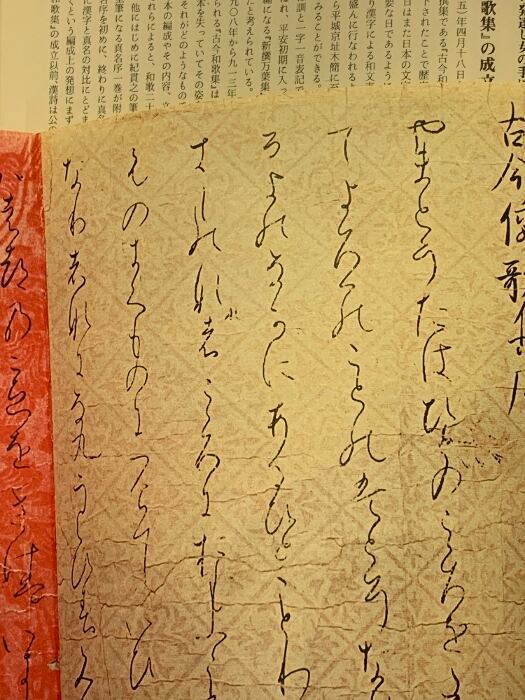 歌集』の成立
五)年四月十八日
撰集である『古今和
下されたことで歴史
日はまた日本の文
要な日であるように
り漢字による和文表
盛んに行なわれるよ
ら平城京址木簡に至
みることができる。
訓と一字一音表記で
れ、平安初期に入っ
編になる『新撰万葉集
たと考えられている。
九〇八年から九一三年
られる『古今和歌集』は
本を失っていてその姿
それがどのようなもの
本の編成やその内容、立
れらによると、和歌二十
他にはじめに紀貫之の筆
筆になる真名序一巻が附
名序を初めに、終わりに真名
漢字と真名の対比にとどま
くという編成上の発想にまず
和歌集』の成立以前、漢詩は公の
古今倭歌集序
やまとうたはひとのこころをた
てよろつのことのはとそな
るよのなかにあるひとことわ
きものなれはこころにおもふこ
ものきくものにつけていひ
なりはなになくうくひすみ
はつのこゑをきけはいき